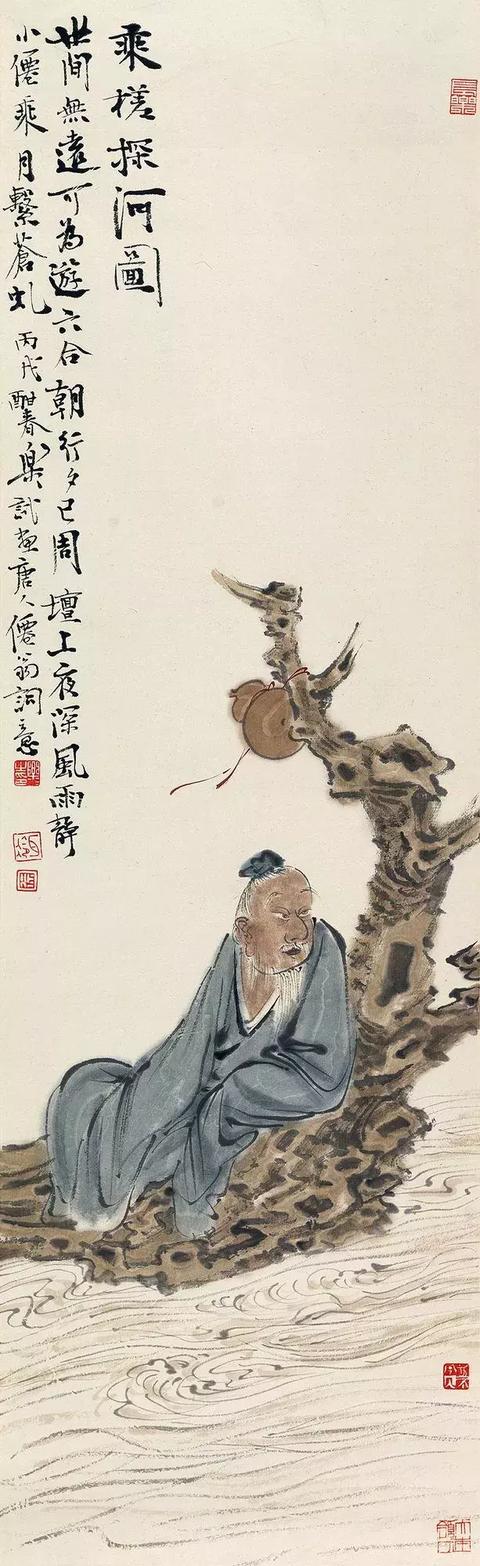 乘槎探河圖
世間無遠可為遊六合朝行夕已周壇上夜深風雨靜
小僊乘月繫蒼虬 丙戌酣春樂試畫唐人僊翁詞意